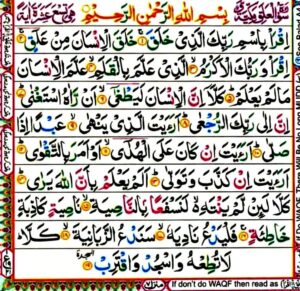 بِسْمِ اللهِ الرَّحْمٰنِ الرَّحِيْمِ
اِقْرَاْ بِاسْمِ رَبِّكَ الَّذِيْ خَلَقَ ۝١ خَلَقَ الْاِنْسَانَ مِنْ عَلَقٍ ۝٢
اِقْرَاْ وَرَبُّكَ الْاَكْرَمُ ۝٣ الَّذِيْ عَلَّمَ بِالْقَلَمِ ۝٤ عَلَّمَ الْاِنْسَانَ
مَا لَمْ يَعْلَمْ ۝٥ كَلَّآ اِنَّ الْاِنْسَانَ لَيَطْغٰٓى ۝٦ اَنْ رَّاٰهُ اسْتَغْنٰى ۝٧
اِنَّ اِلٰى رَبِّكَ الرُّجْعٰى ۝٨ اَرَءَيْتَ الَّذِيْ يَنْهٰى ۝٩ عَبْدًا اِذَا
صَلّٰى ۝١٠ اَرَءَيْتَ اِنْ كَانَ عَلَى الْهُدٰٓى ۝١١ اَوْ اَمَرَ بِالتَّقْوٰى ۝١٢
اَرَءَيْتَ اِنْ كَذَّبَ وَتَوَلّٰى ۝١٣ اَلَمْ يَعْلَمْ بِاَنَّ اللهَ يَرٰى ۝١٤
كَلَّا لَئِنْ لَّمْ يَنْتَهِ لَنَسْفَعًۢا بِالنَّاصِيَةِ ۝١٥ نَاصِيَةٍ كَاذِبَةٍ
خَاطِئَةٍ ۝١٦ فَلْيَدْعُ نَادِيَهٗ ۝١٧ سَنَدْعُ الزَّبَانِيَةَ ۝١٨ كَلَّا
لَا تُطِعْهُ وَاسْجُدْ وَاقْتَرِبْ ۝١٩
If don't do WAQF then read as